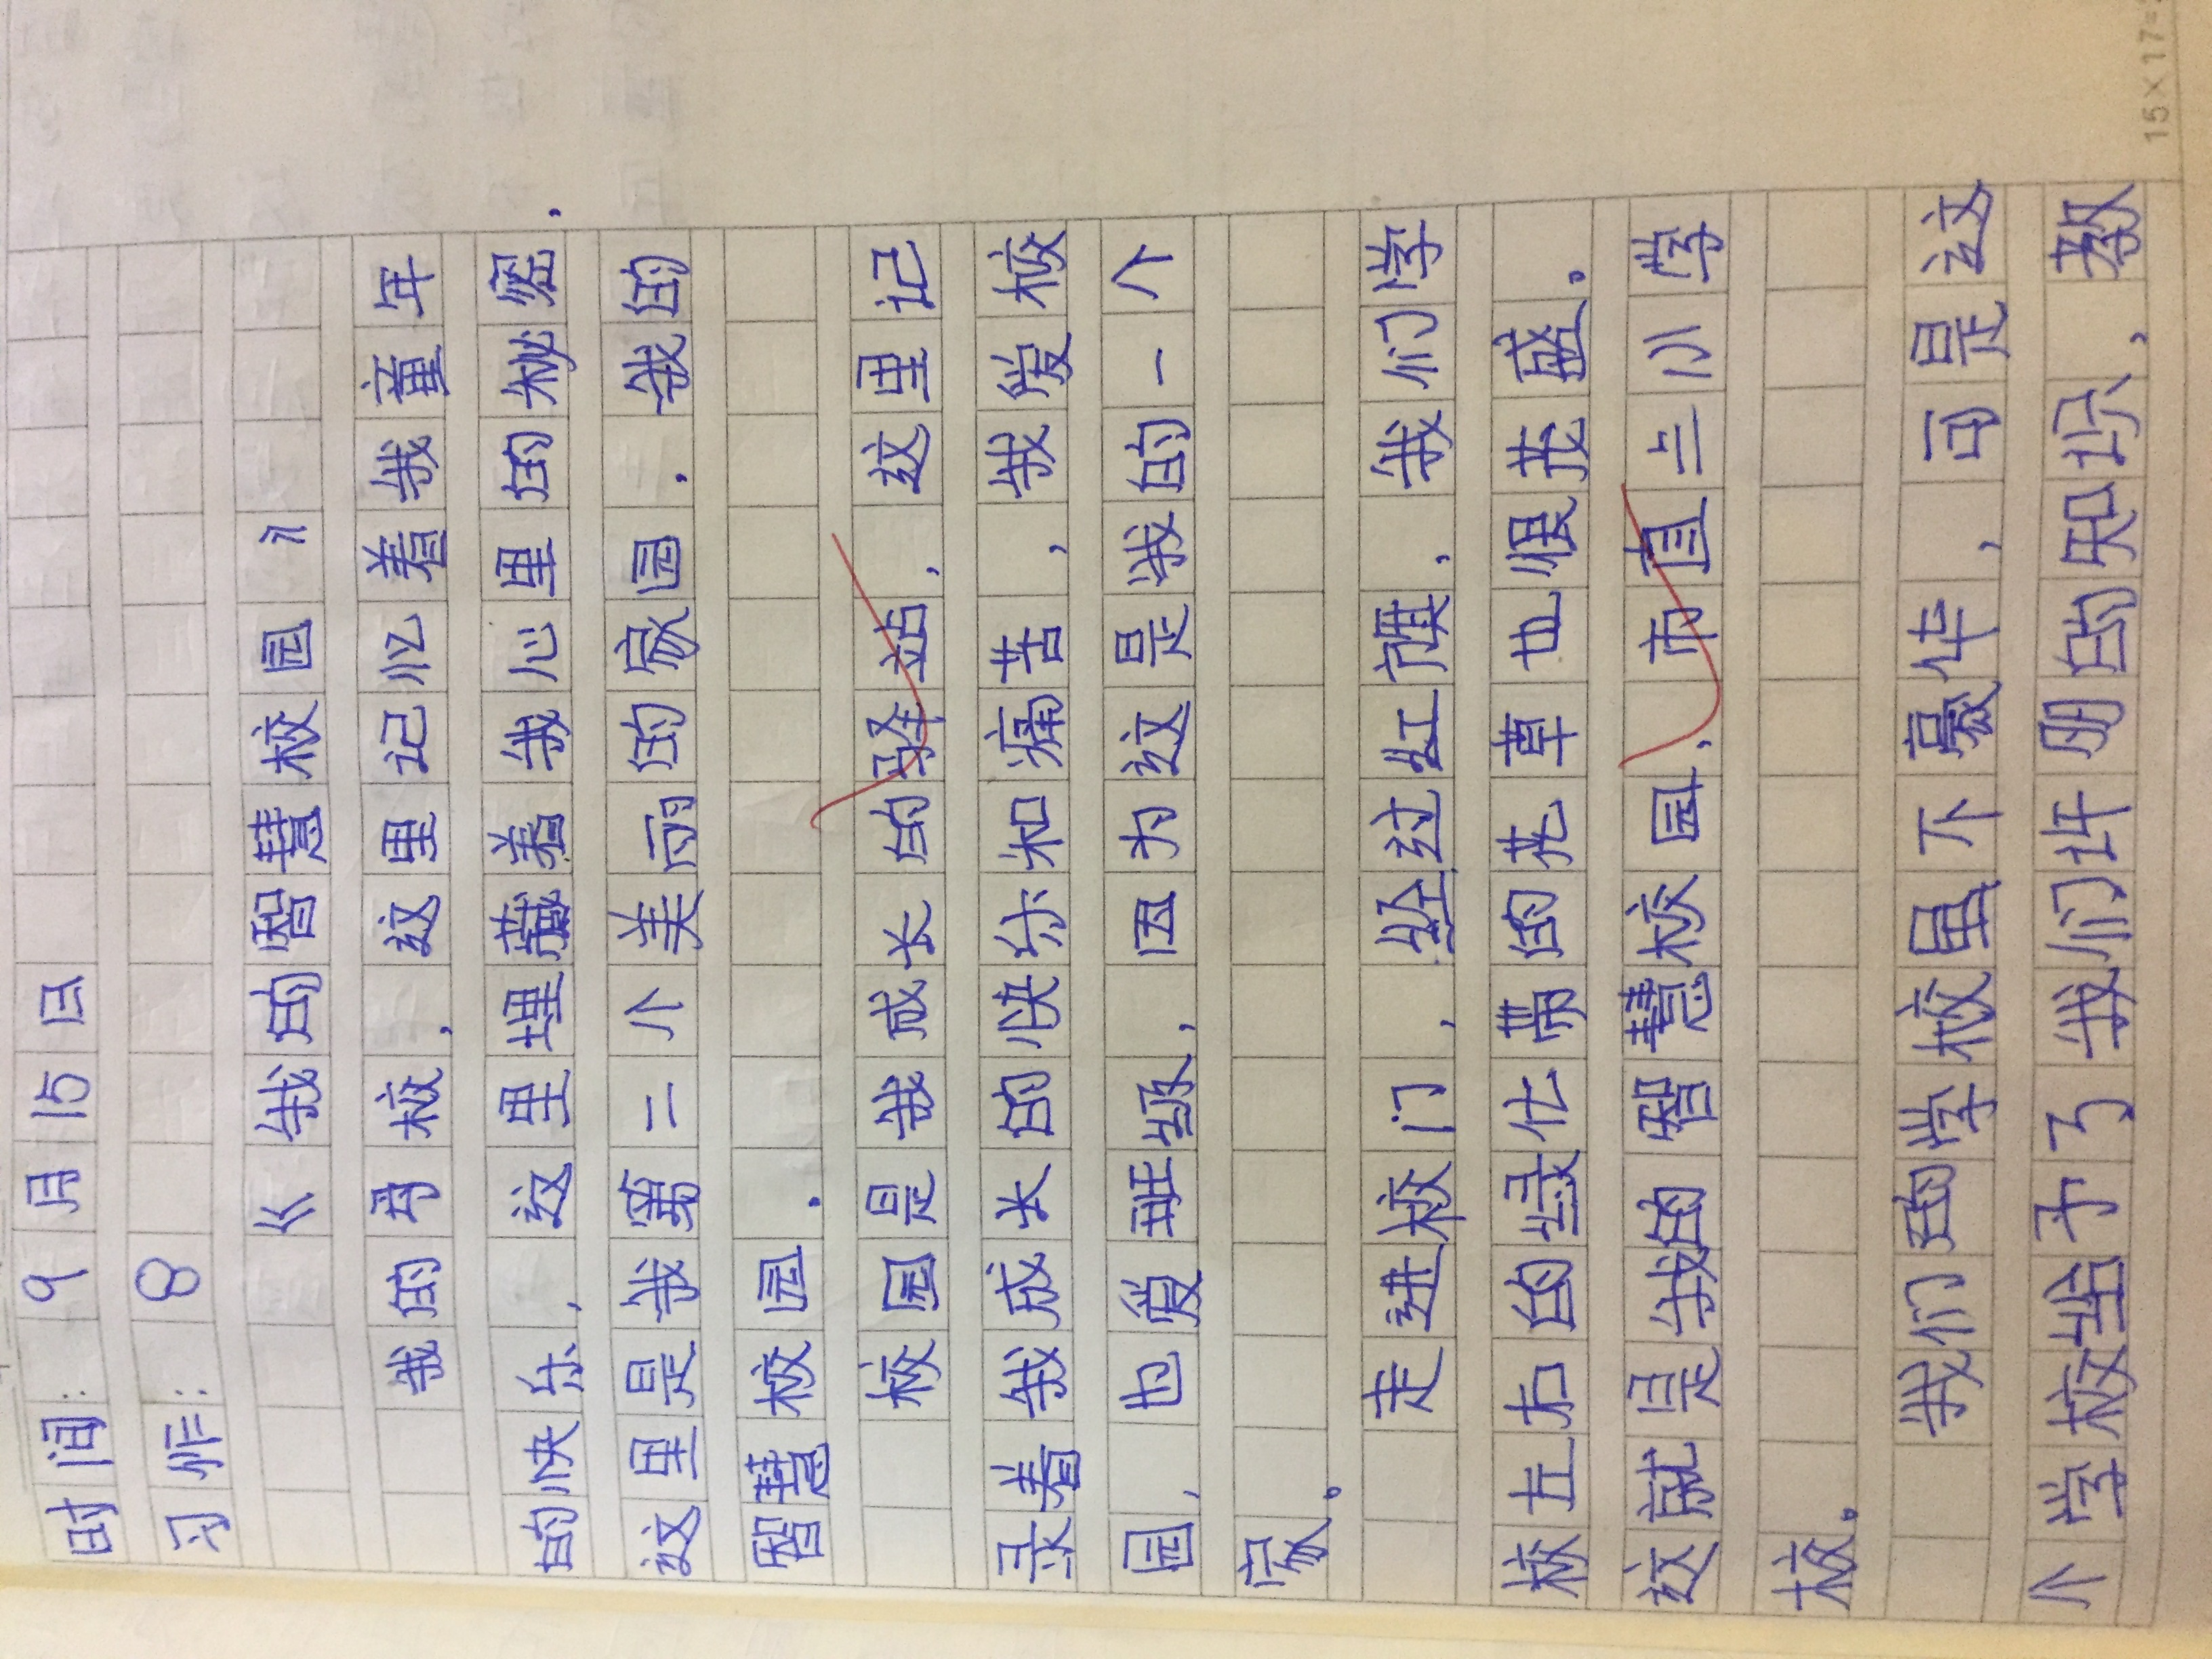 时间：9月15日
习作：8
《我的智慧校园》
我的母校，这里记忆着我童年
的快乐，这里埋藏着我心里的秘密.
这里是我第二个美丽的家园.我的
智慧校园.
校园是我成长的驿站，这里记
录着我成长的快乐和痛苦，我爱校
园，也爱班级，因为这是我的一个
家。
走进校门，经过红旗，我们学
校左右的绿化带的花草也很茂盛。
这就是我的智慧校园、市直三小学
校。
我们的学校虽不豪华，可是这
个学校给予了我们许朋的知识，教
15×17=2